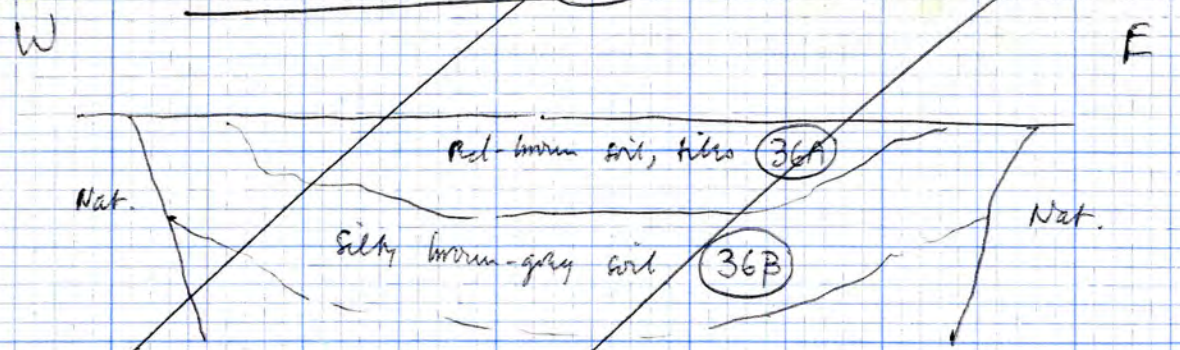 W E
Red-brown soil, silts 36A
Nat. Nat.
Silty brown-grey soil 36B